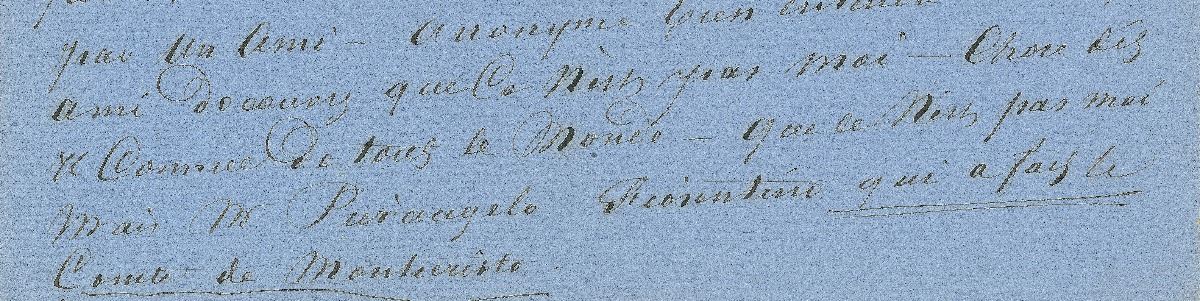 par un Ami – anonyme bien entendu
ami découvrez que Ce N'est pas moi – Chose déjà
& Connue de tout le Monde – que ce N'est pas moi
Mais M Pierangelo Fiorentino qui a fait le
Comte de Montecristo